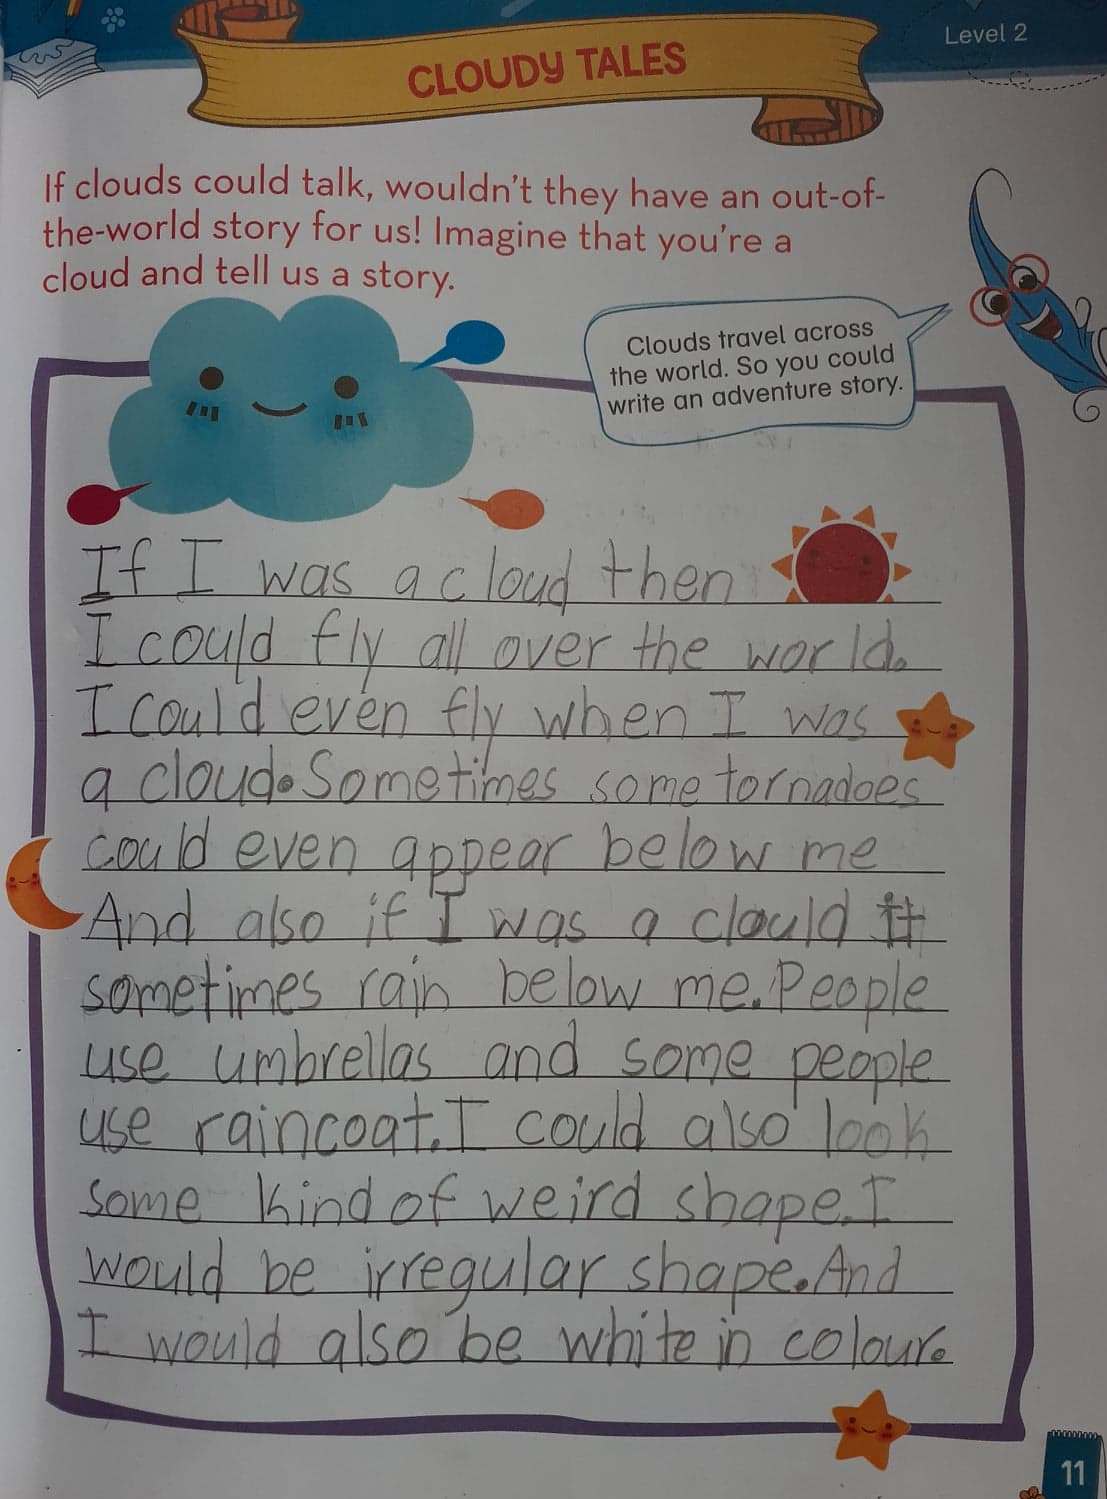 Level 2
CLOUDY TALES
If clouds could talk, wouldn't they have an out-of-
the-world story for us! Imagine that you're a
cloud and tell us a story.
Clouds travel across
the world. So you could
write an adventure story.
If I was a cloud then
I could fly all over the world.
I could even fly when I was
a cloud. Sometimes some tornadoes
could even appear below me
And also if I was a clould it
sometimes rain below me. People
use umbrellas and some people
use raincoat. I could also look
some kind of weird shape. I
would be irregular shape. And
I would also be white in colour.
11